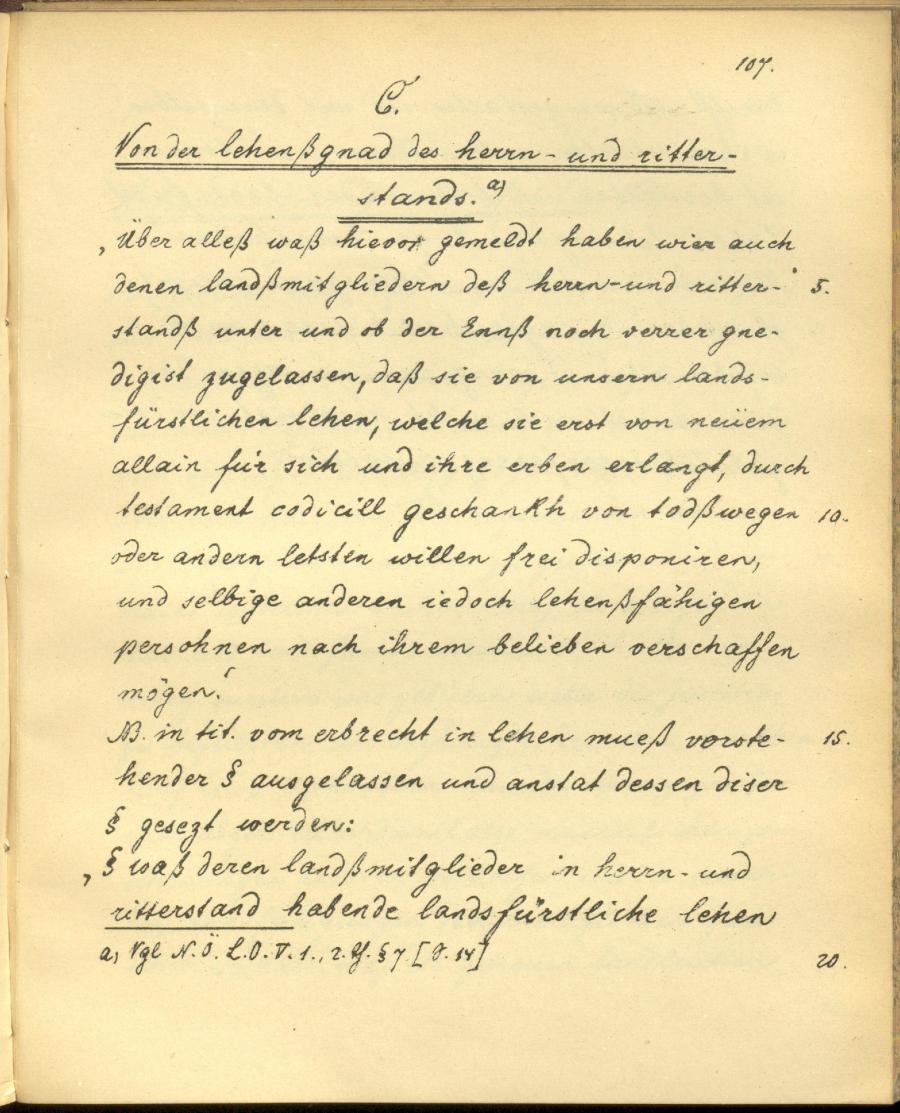 107.
C.
Von der lehenßgnad des herrn- und ritter-
stands. a)
‚Über alleß waß hievor gemeldt haben wier auch
denen landßmitgliedern deß herrn- und ritter- 5.
standß unter und ob der Ennß noch verrer gne-
digist zugelassen, daß sie von unsern lands-
fürstlichen lehen, welche sie erst von neüem
allain für sich und ihre erben erlangt, durch
testament codicill geschankh von todßwegen 10.
oder andern letsten willen frei disponiren,
und selbige anderen iedoch lehenßfähigen
persohnen nach ihrem belieben verschaffen
mögen.‘
NB. in tit. vom erbrecht in lehen mueß vorste- 15.
hender § ausgelassen und anstat dessen diser
§ gesezt werden:
‚§ waß deren landßmitglieder in herrn- und
ritterstand habende landsfürstliche lehen
a) Vgl N.Ö.L.O. V. 1., 2. § 7 [S. 14] 20.